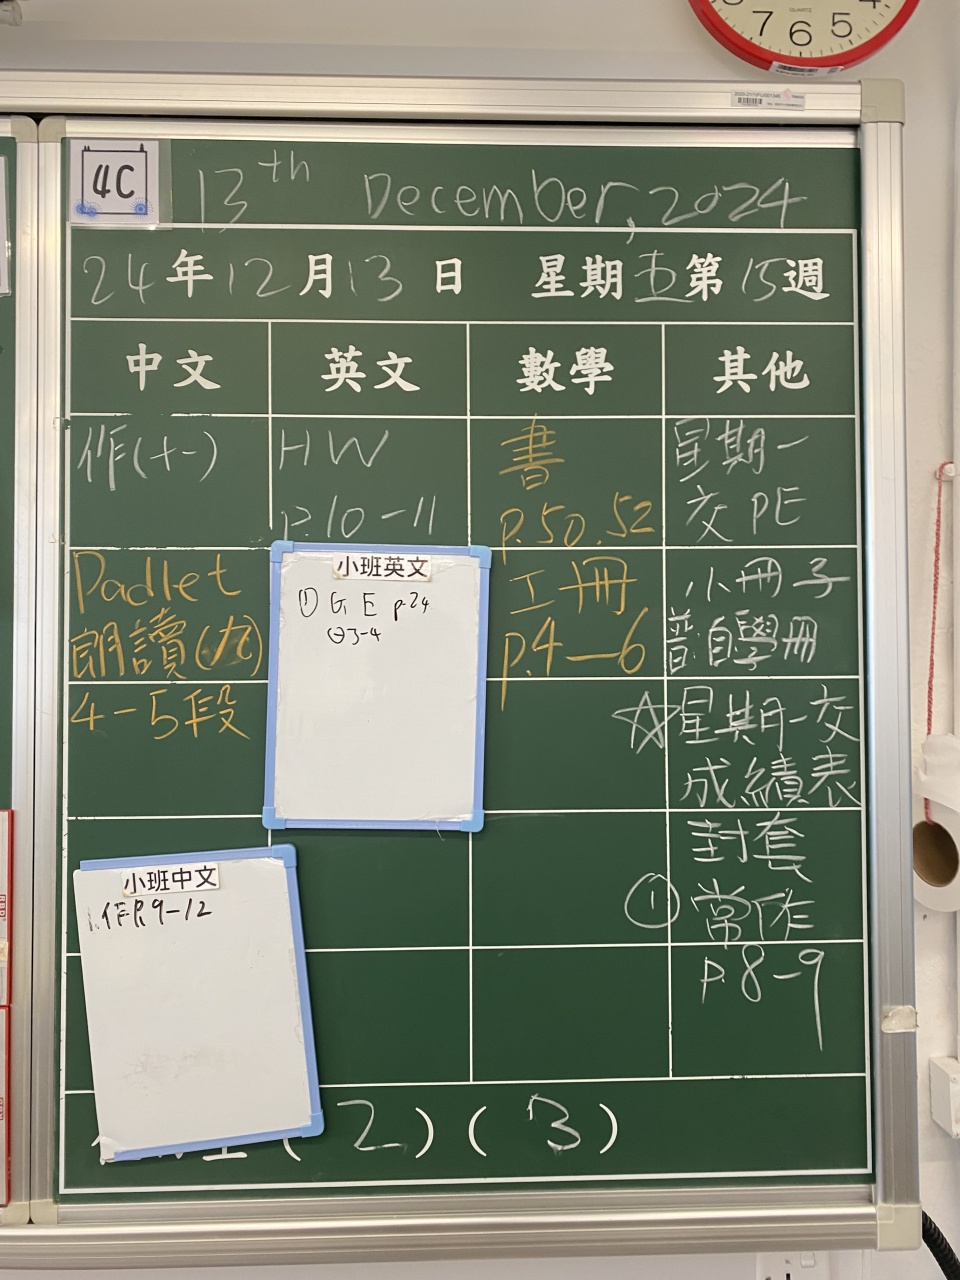 7 6 5
4C
13th December, 2024
24年12月13日 星期五第15週
中文 英文 數學 其他
作(十一)
HW
p.10-11
書
p.50.52
星期一
交PE
Padlet
朗讀(九)
4-5段
小班英文
① G E p.24
3-4
工冊
p.4—6
小冊子
普:自學冊
☆星期一交
成績表
封套
① 常作
p.8-9
小班中文
1.作P.9-12
(2)(3)